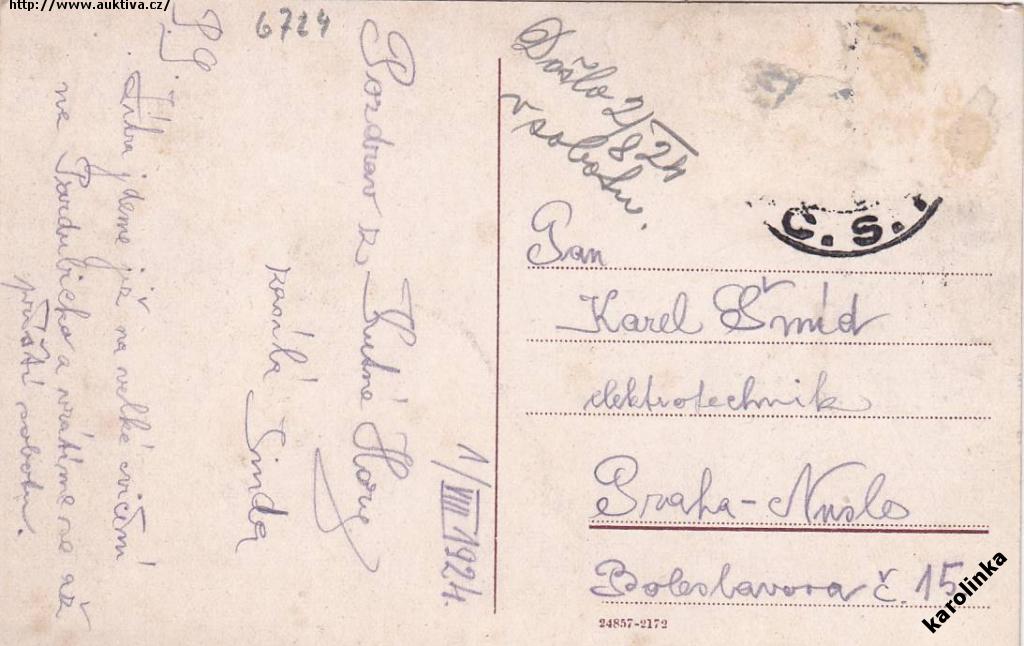 http://www.auktiva.cz/
6724
Pozdrav z Kutné Hory
zasílá Jinda
1/VIII 1924.
P.S.
Zítra jdeme již na velké cvičení
na Pardubicko a vrátíme se až
příští sobotu.
Došlo 2/8 24
v sobotu.
C.S.
Pan
Karel Šmíd
elektrotechnik
Praha-Nusle
Boleslavova č. 15
24857-2172
karolinka